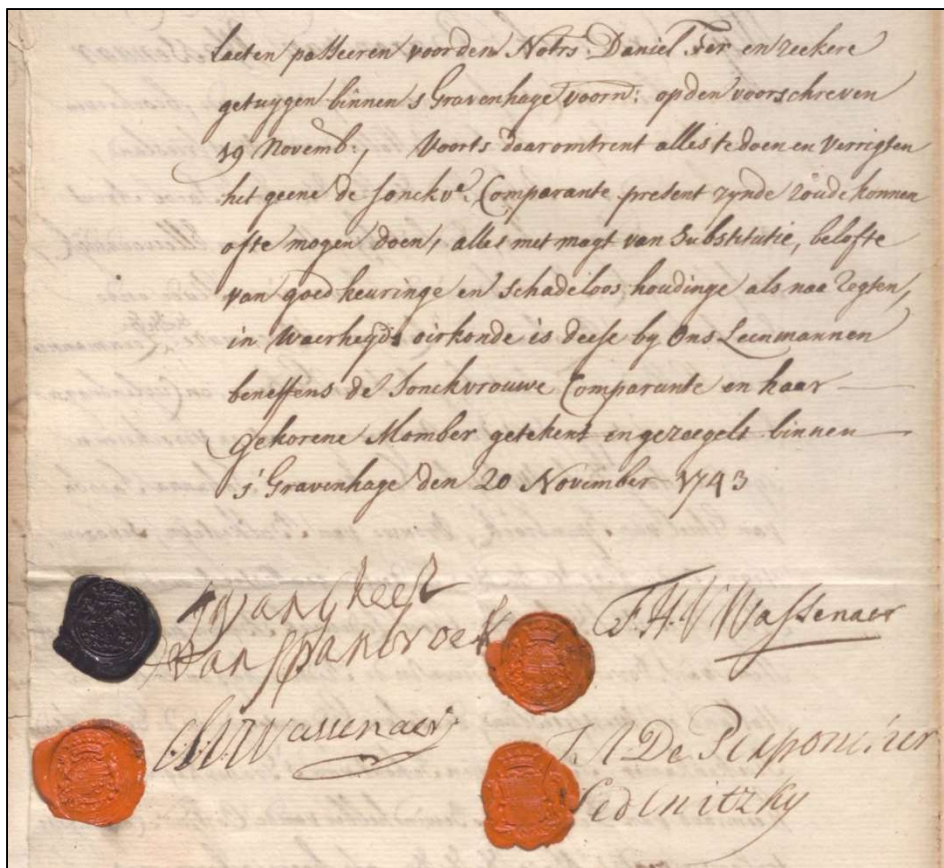 Laeten passeeren voor den Notrs. Daniel Fer en zeekere
getuygen binnen s Gravenhage voorn: op den voorschreven
19 Novemb:, Voorts daaromtrent alles te doen en verrigten
het geene de Jonckve. Comparante present zynde zoude konnen
ofte mogen doen, alles met magt van Substitutie, belofte
van goedkeuringe en schadeloos houdinge als naa Regten,
in Waerheyds oirkonde is deese by Ons Leenmannen
beneffens de Jonckvrouwe Comparante en haar
gekorene Momber getekent en gezeegelt binnen
s' Gravenhage den 20 November 1743
van Spanbroek
F. H. V. Wassenaer
Wassenaer
De
Sedlnitzky